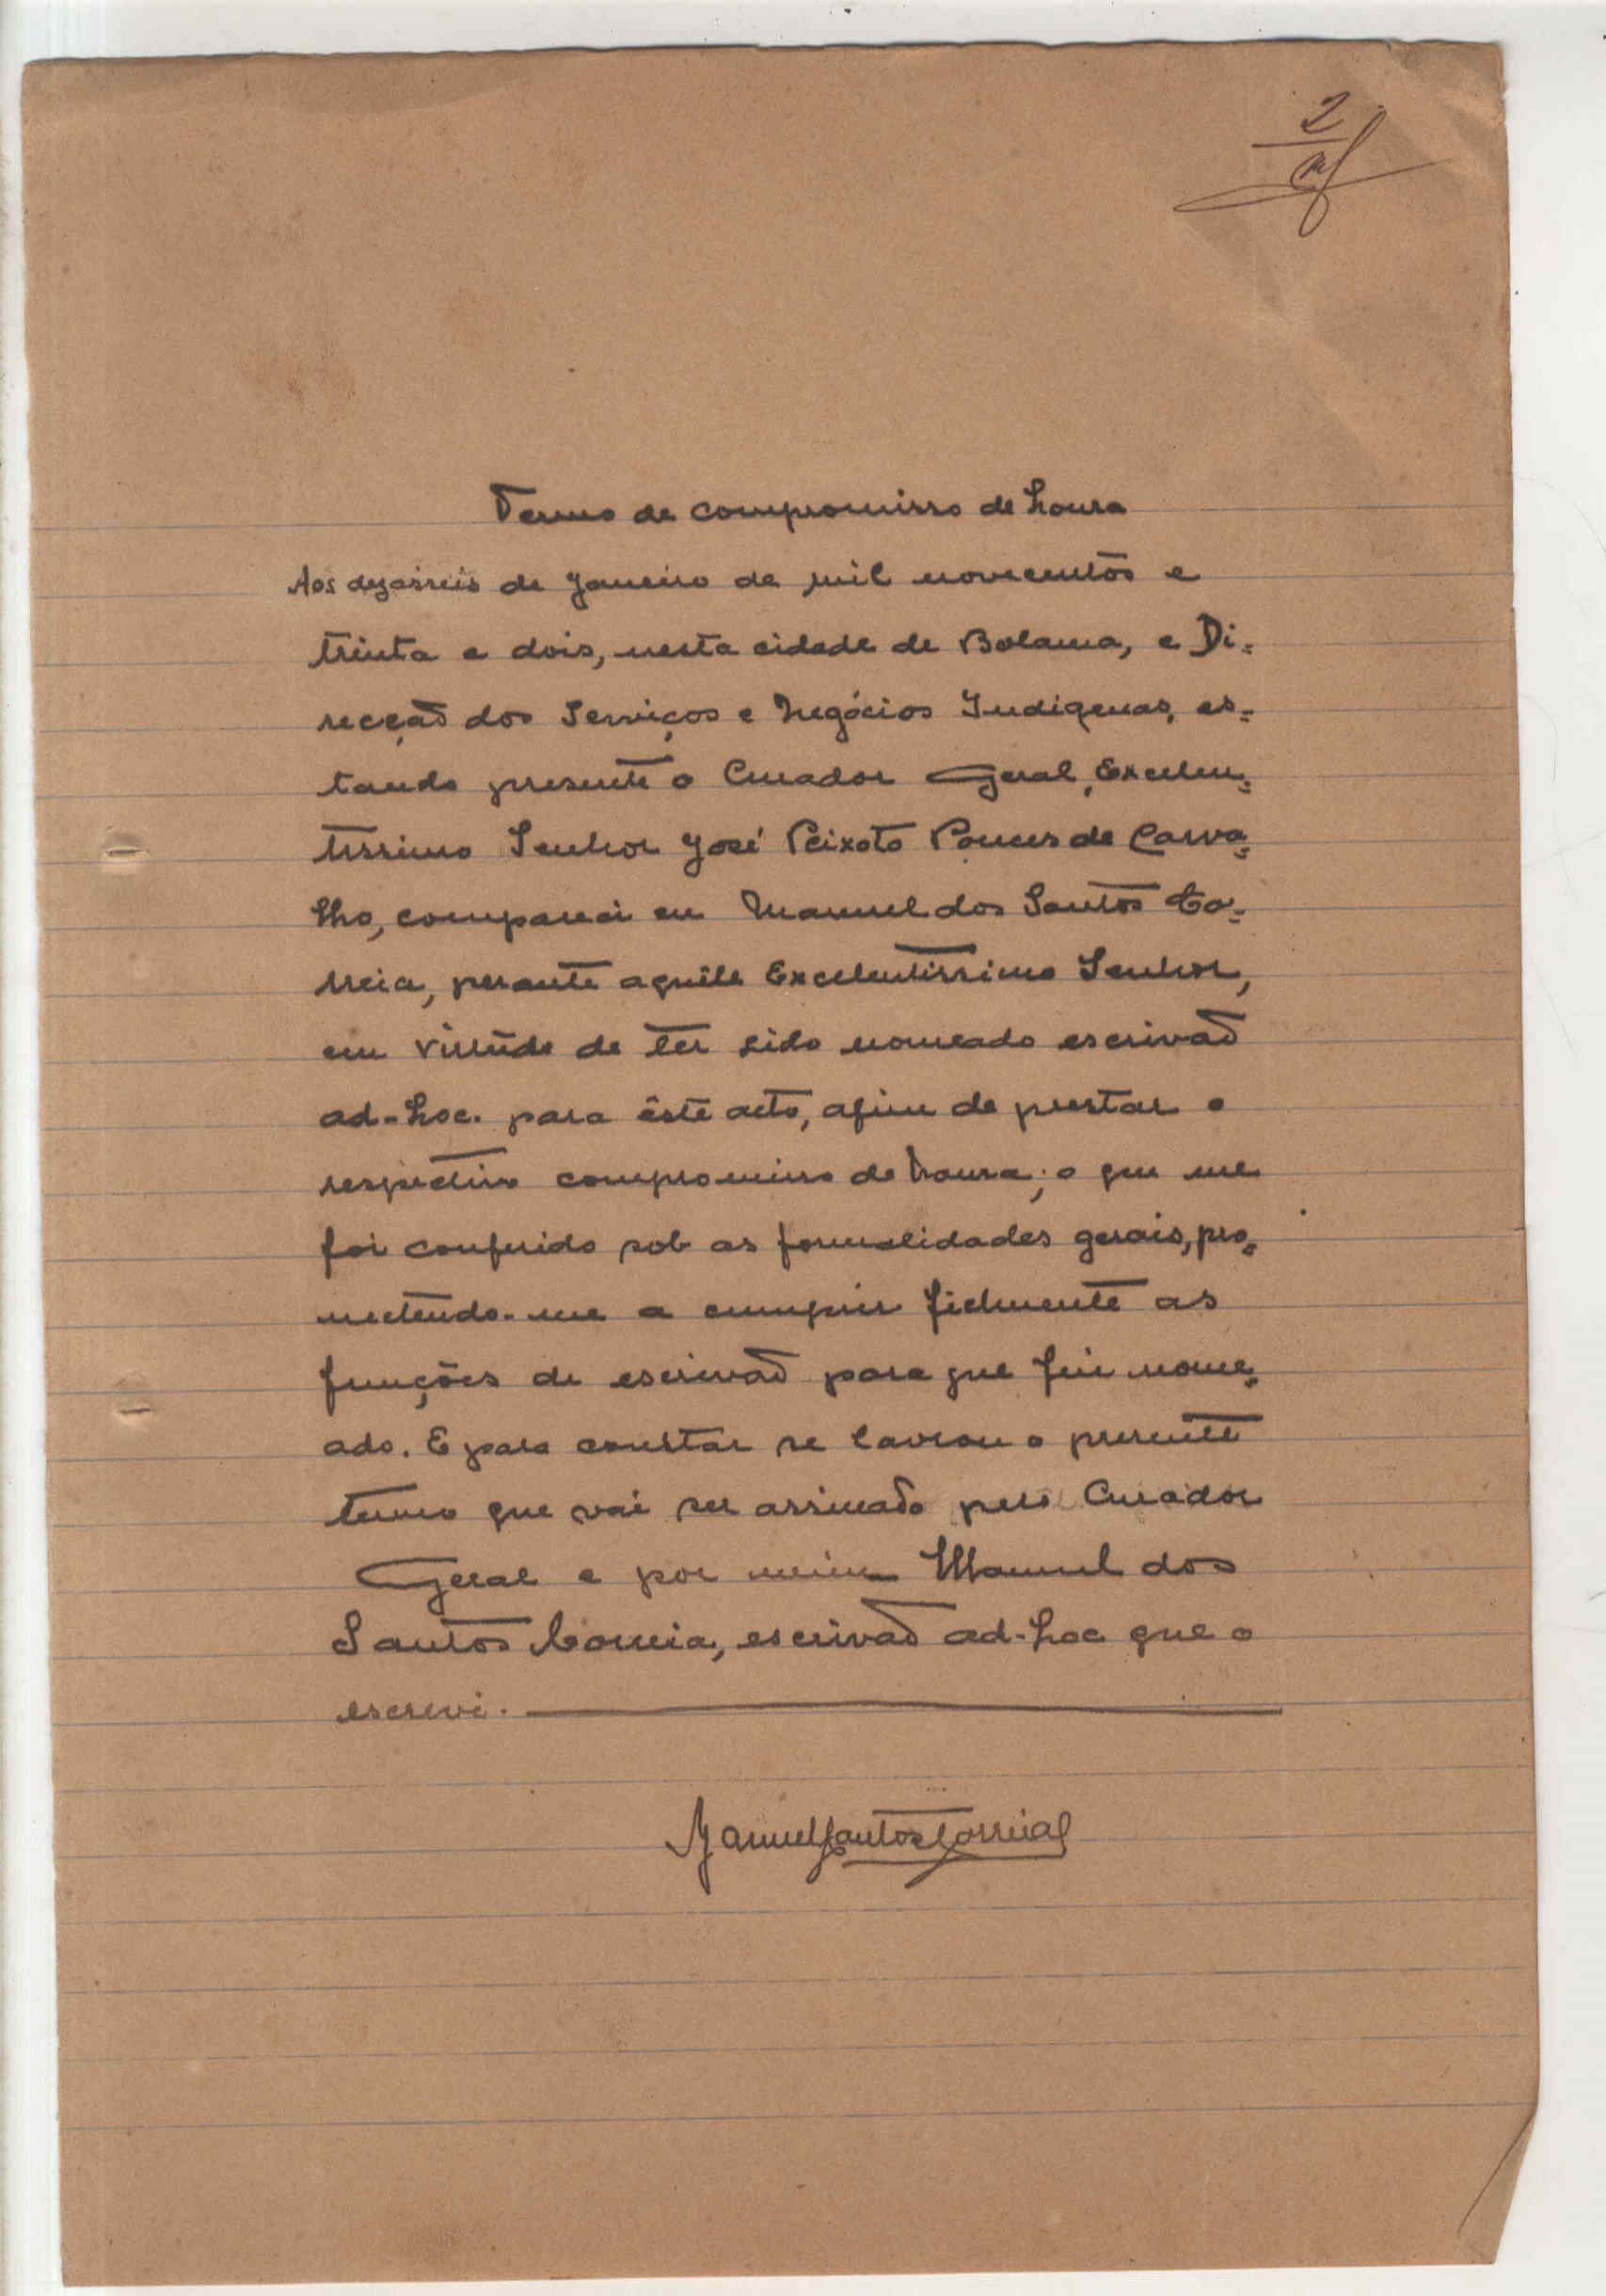 2
Termo de compromisso de honra
Aos dezasseis de Janeiro de mil novecentos e
trinta e dois, nesta cidade de Bolama, e Di-
recção dos Serviços e Negócios Indigenas, es-
tando presente o Curador Geral, Excelen-
tissimo Senhor José Peixoto Ponces de Carva-
lho, compareci eu Manuel dos Santos Co-
rreia, perante aquêle Excelentissimo Senhor,
em virtude de ter sido nomeado escrivão
ad-hoc. para êste acto, afim de prestar o
respectivo compromisso de honra; o que me
foi conferido sob as formalidades gerais, pro-
metendo-me a cumprir fielmente as
funções de escrivão para que fui nome-
ado. E para constar se lavrou o presente
termo que vai ser assinado pelo Curador
Geral e por mim Manuel dos
Santos Correia, escrivão ad-hoc que o
escrevi.
Manuel Santos Correia